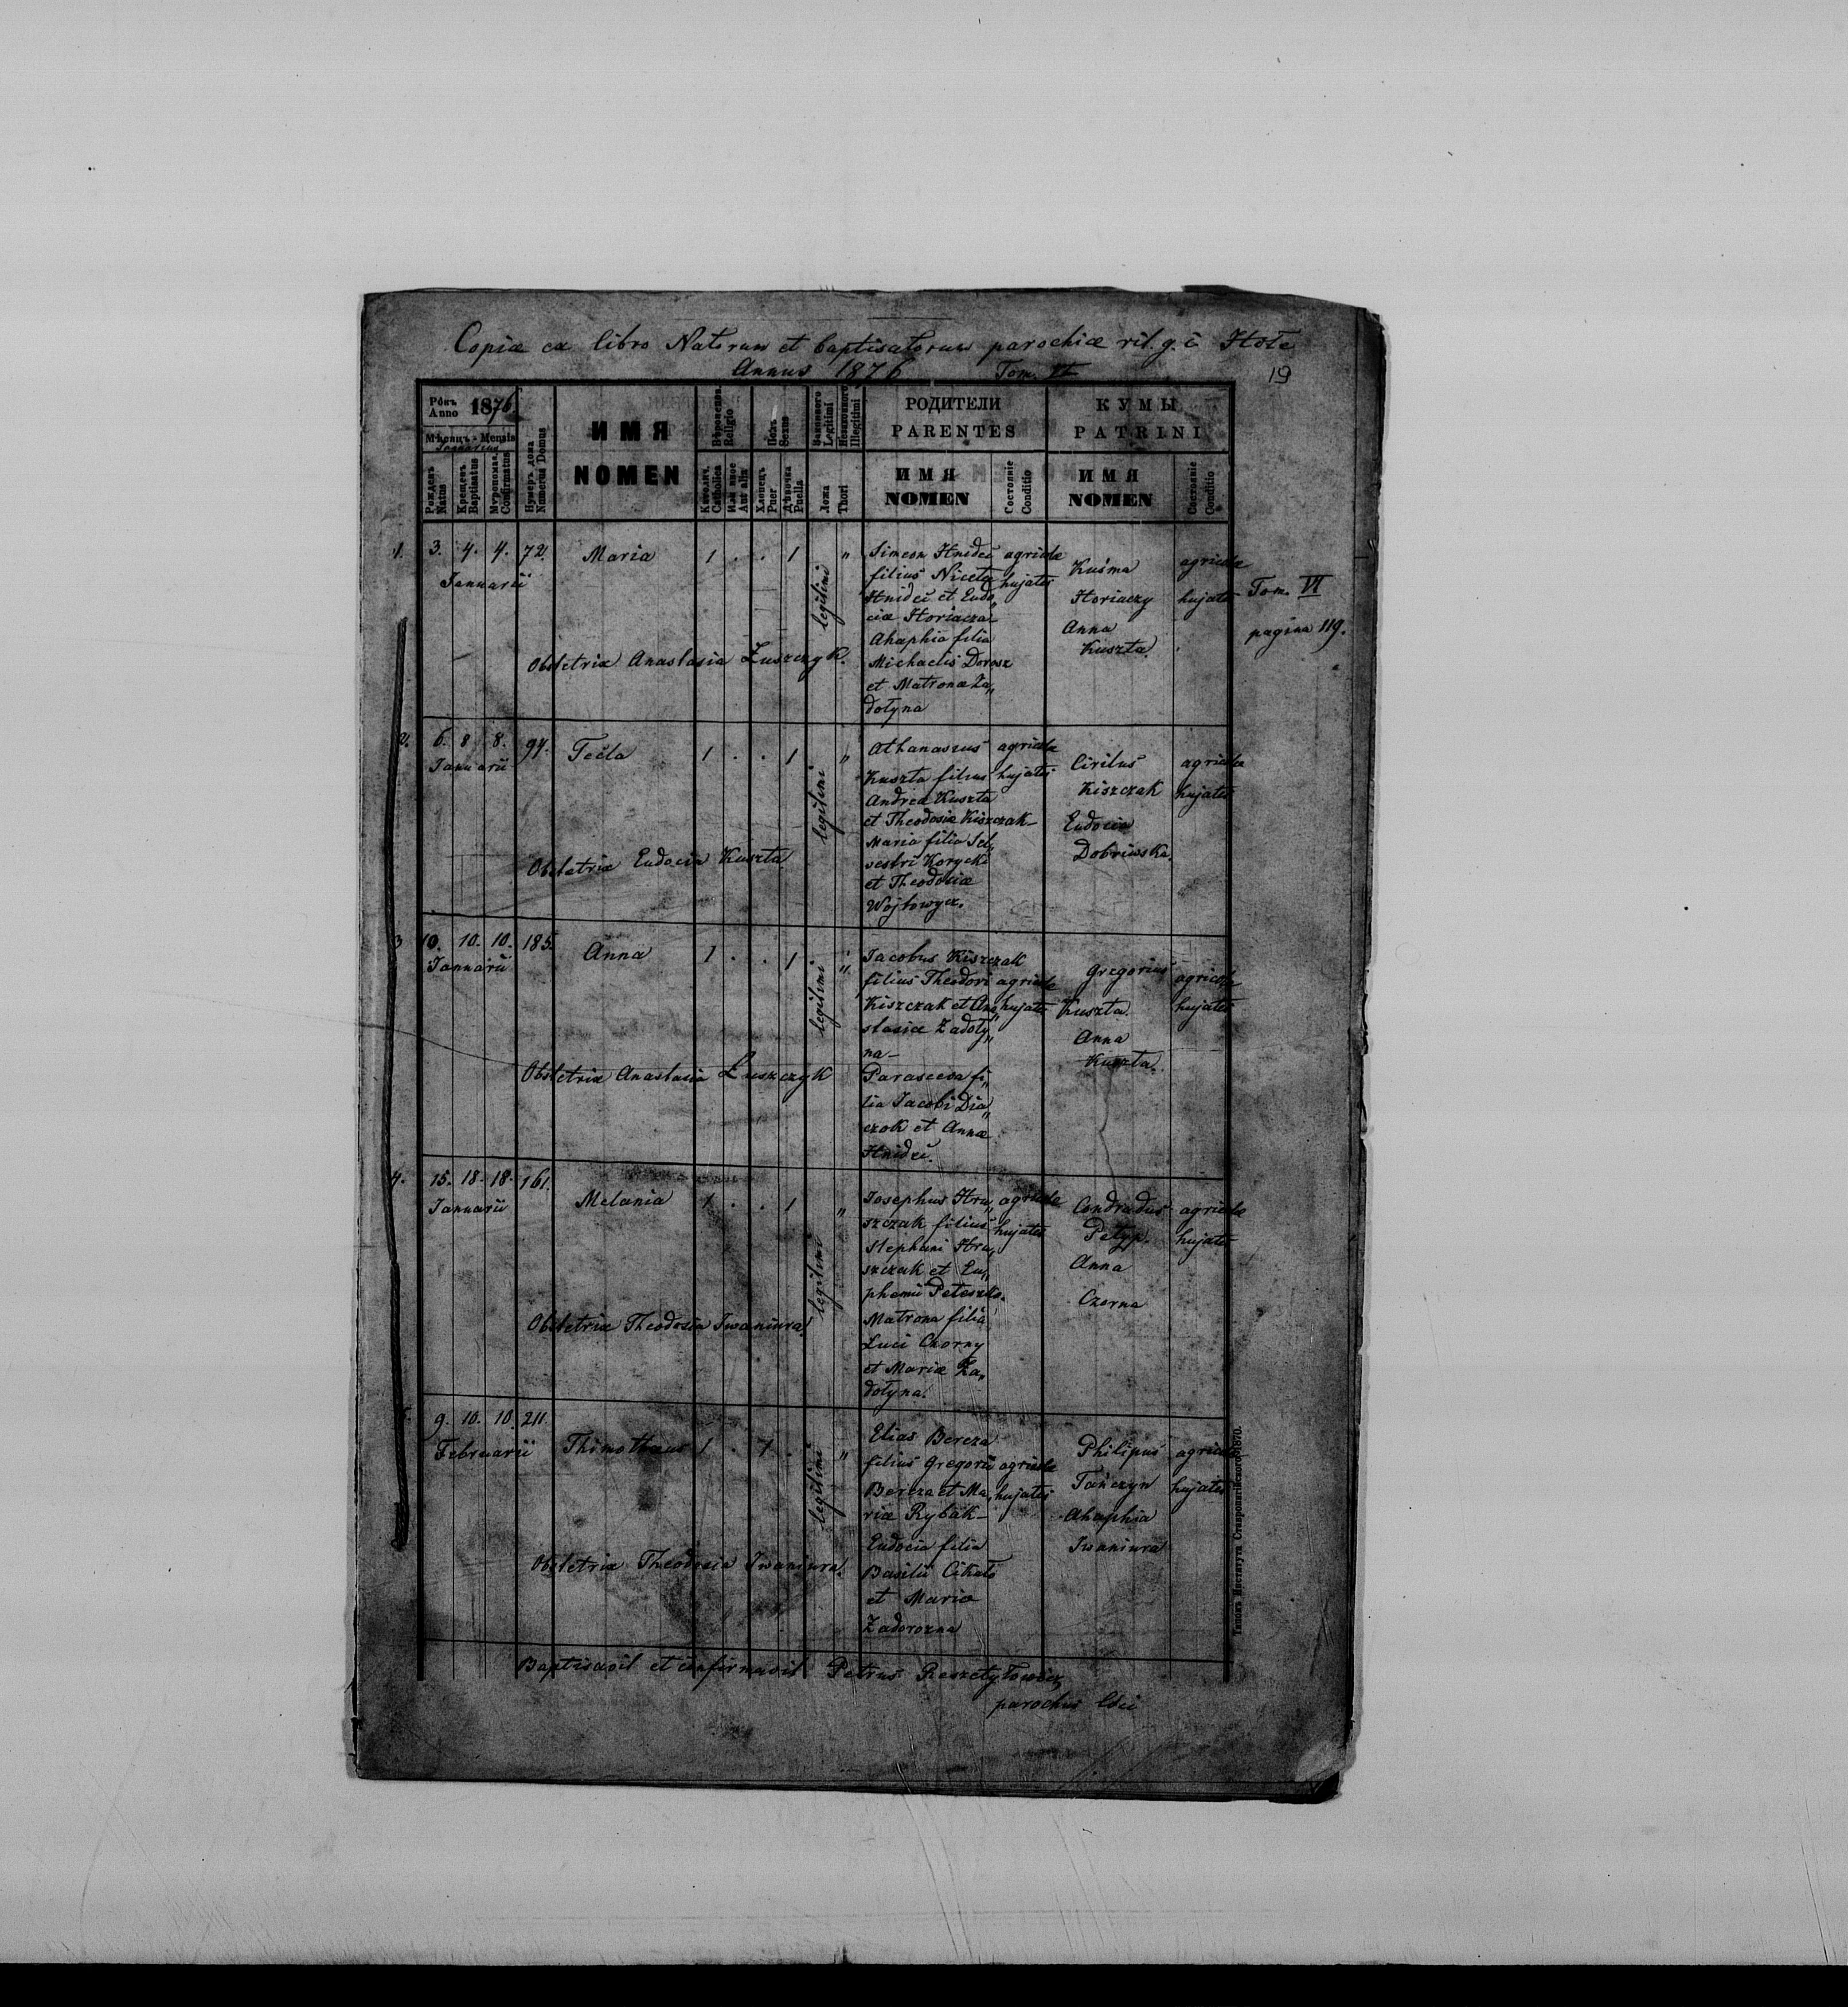 Copiæ ex libro Natorum et baptisatorum parochiæ rit. g. c. Hołe
Annus 1876 Tom. VI
19
Рôкъ Anno 1876
Мѣсяцъ - Mensis
Januarius
Рожденъ Natus
Крещенъ Baptisatus
Мѵропомаз. Confirmatus
Нумеръ дома Numerus Domus
ИМЯ
NOMEN
Вѣроисповѣд. Religio
Католич. Catholica
Или иное Aut alia
Полъ Sexus
Хлопецъ Puer
Дѣвочка Puella
Законного Legitimi
Незаконного Illegitimi
Ложа Thori
РОДИТЕЛИ
PARENTES
ИМЯ
NOMEN
Состоянiе Conditio
КУМЫ
PATRINI
ИМЯ
NOMEN
Состоянiе Conditio
1. 3. 4. 4. 72. Maria 1 . . 1 legitimi "
Januarii
Simeon Hnideć agricola
filius Niceta hujatis
Hnideć et Eudo„
ciæ Horiacza-
Ahaphia filia
Michaelis Dorosz
et Matronæ Za„
dołyna
Kuśma agricola
Horiaczy hujatis
Anna
Kuszta.
Tom. VI
pagina 119.
Obstetrix Anastasia Łuszczyk.
2. 6. 8 8. 94. Tecla 1 . . 1 legitimi "
Januarii
Athanasius agricola
Kuszta filius hujatis
Andrea Kuszta
et Theodosiæ Kiszczak-
Maria filia Sil„
vestri Korycki
et Theodosiæ
Wojtowycz.
Cirilus agricola
Kiszczak hujatis
Eudocia
Dobriwska.
Obstetrix Eudocia Kuszta
3 10. 10. 10. 185. Anna 1 . . 1 legitimi "
Januarii
Jacobus Kiszczak
filius Theodori agricola
Kiszczak et Ana„ hujatis
stasiæ Zadoły„
na-
Parasceva fi„
lia Jacobi Dia„
czok et Annæ
Hnideć.
Gregorius agricola
Kuszta. hujatis
Anna
Kuszta.
Obstetrix Anastasia Łuszczyk
4. 15. 18. 18. 161. Melania 1 . . 1 legitimi "
Januarii
Josephus Hru„ agricola
szczak filius hujatis
Stephani Hru„
szczak et Eu„
phemii
Matrona filia
Luci Czorny
et Mariæ Za„
dołyna.
Condradus agricola
Petyp. hujatis
Anna
Czorna
Obstetrix Theodosia Iwaniura
9. 10. 10 211. Thimotheus 1 . 1 . legitimi "
Februarii
Elias Bereza
filius Gregorii agricola
Bereza et Ma„ hujatis
riæ Rybak-
Eudocia filia
Basilii
et Maria
Zadorozna
Philipus agricola
Tańczyn hujatis
Ahaphia
Iwaniura
Obstetrix Theodosia Iwaniura.
Baptisavit et confirmavit Petrus Reszetyłowicz
parochus loci
Типомъ Института Ставропигiйского 1870.